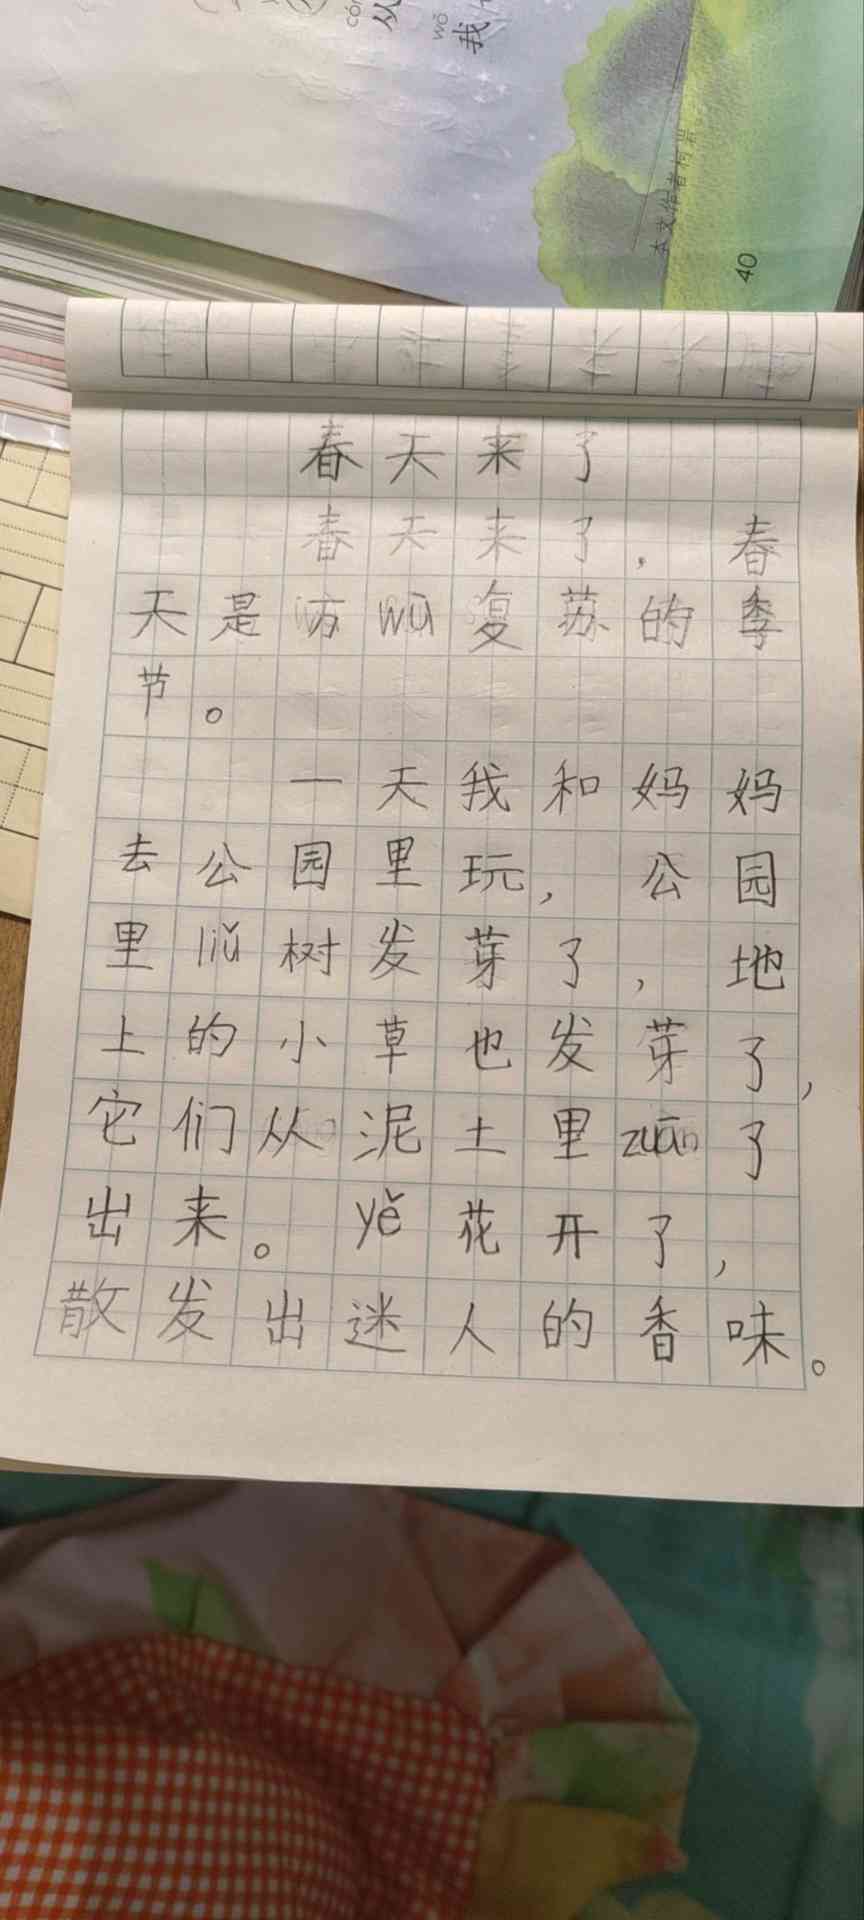 cóng
从
wǒ
我
本文作者柯岩
40
春天来了
春天来了，春
天是万wù复苏的季
节。
一天我和妈妈
去公园里玩，公园
里liǔ树发芽了，地
上的小草也发芽了，
它们从泥土里zuān了
出来。yě花开了，
散发出迷人的香味。